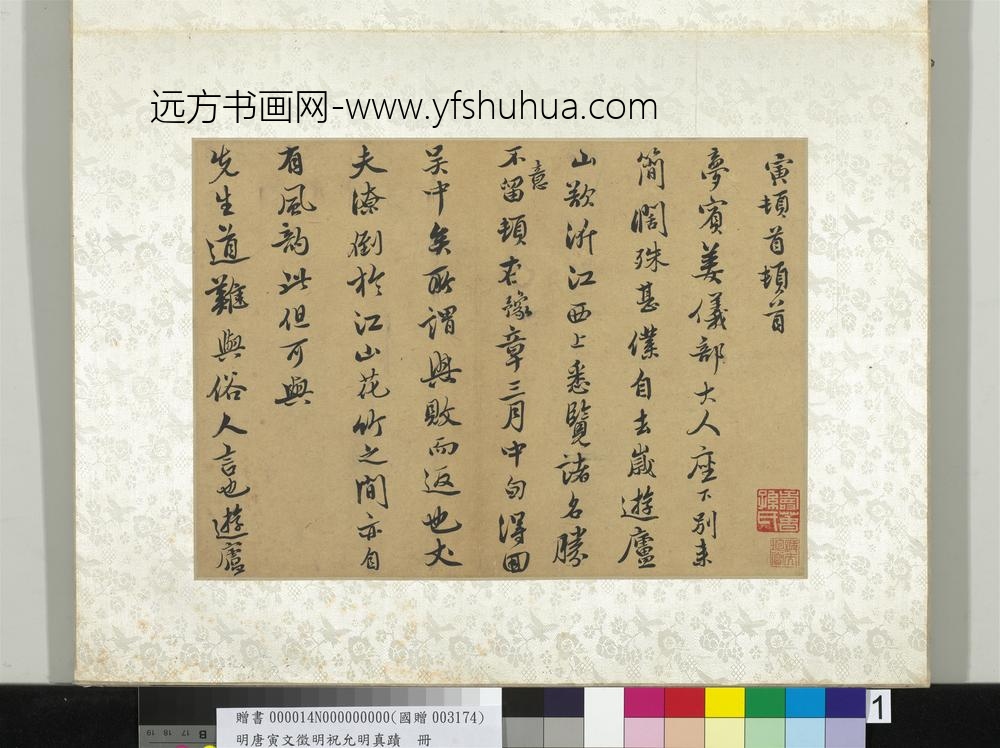 远方书画网-www.yfshuhua.com
寅頓首頓首
夢賓姜儀部大人座下別来
簡闊殊甚僕自去歲遊廬
山欲泝江西上悉覽諸名勝
不意留頓豫章三月中旬得回
吴中矣所謂興敗而返也大
夫潦倒於江山花竹之間亦自
有風韵此但可與
先生道難與俗人言也遊廬
贈書 000014N000000000(國贈 003174)
明唐寅文徵明祝允明真蹟 冊
1
19 18 17 16 B